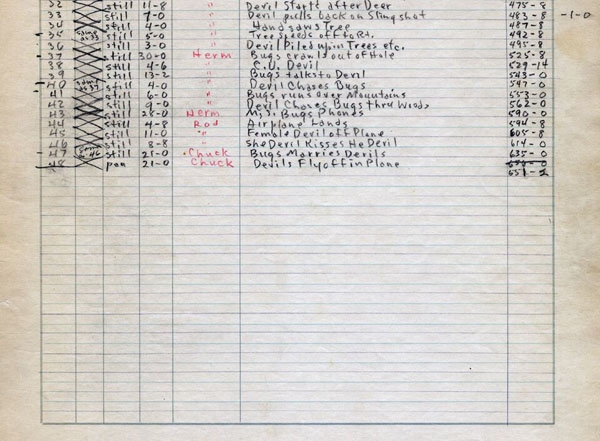 32 still 11-8 " Devil Starts after Deer 475-8
33 still 7-0 " Devil pulls back on Slingshot 483-8 -1-0
34 still 4-0 " Hand saws Tree 487-8
35 still 5-0 " Tree speeds off to Rt. 492-8
36 still 3-0 " Devil Piled up in Trees etc. 495-8
37 still 30-0 Herm Bugs crawls out of Hole 525-8
38 still 4-6 " C.U. Devil 529-14
39 still 13-2 " Bugs talks to Devil 543-0
40 still 4-0 " Devil Chases Bugs 547-0
41 still 6-0 " Bugs runs over Mountains 553-0
42 still 9-0 " Devil Chases Bugs thru Woods 562-0
43 still 28-0 Herm Bugs Phones 590-0
44 still 4-8 Rod Airplane Lands 594-8
45 still 11-0 " Female Devil off Plane 605-8
46 still 8-8 " She Devil Kisses He Devil 614-0
47 still 21-0 Chuck Bugs Marries Devils 635-0
48 pan 21-0 Chuck Devils Fly off in Plane